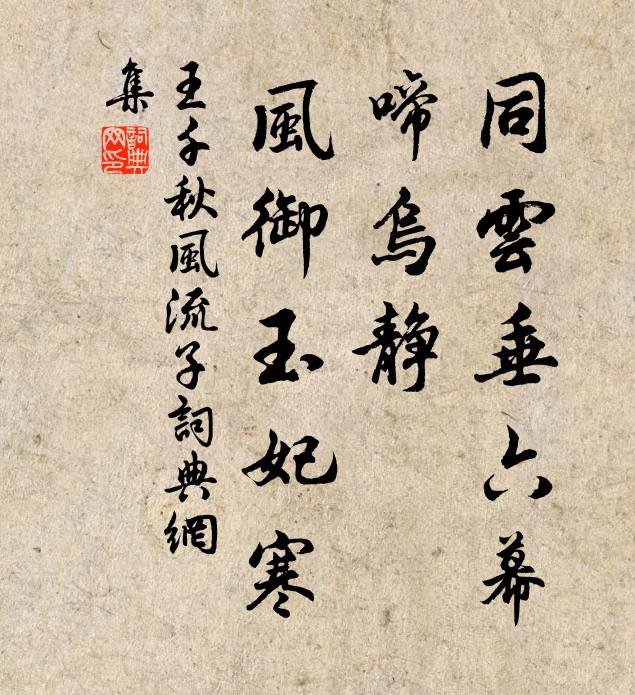 同雲垂六幕
啼烏靜
風御玉妃寒
王千秋風流子詞典網
集
詞典
网印